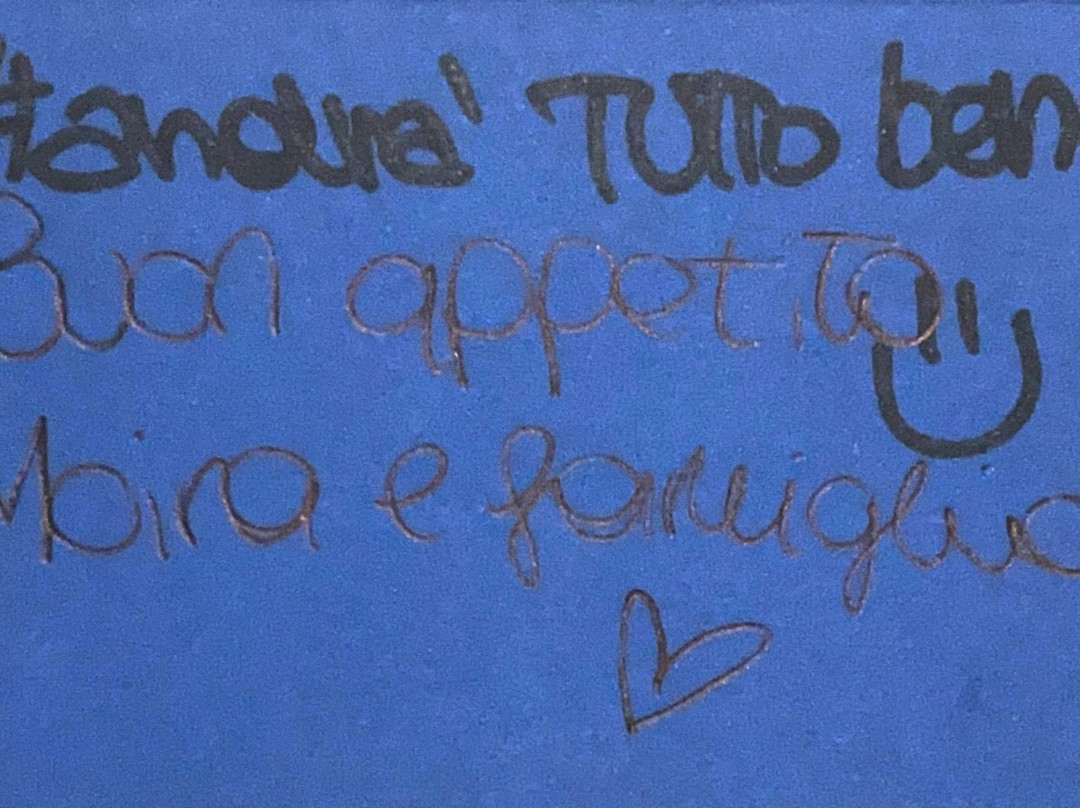 #andrà TUTTO ben
Buon appetito
Moira e famiglia